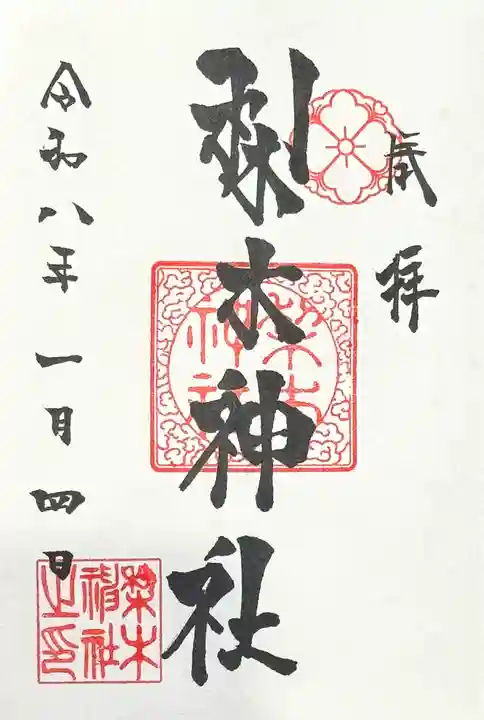 奉拝
梨木神社
令和八年一月四日
梨木
神社
梨木
神社
之印